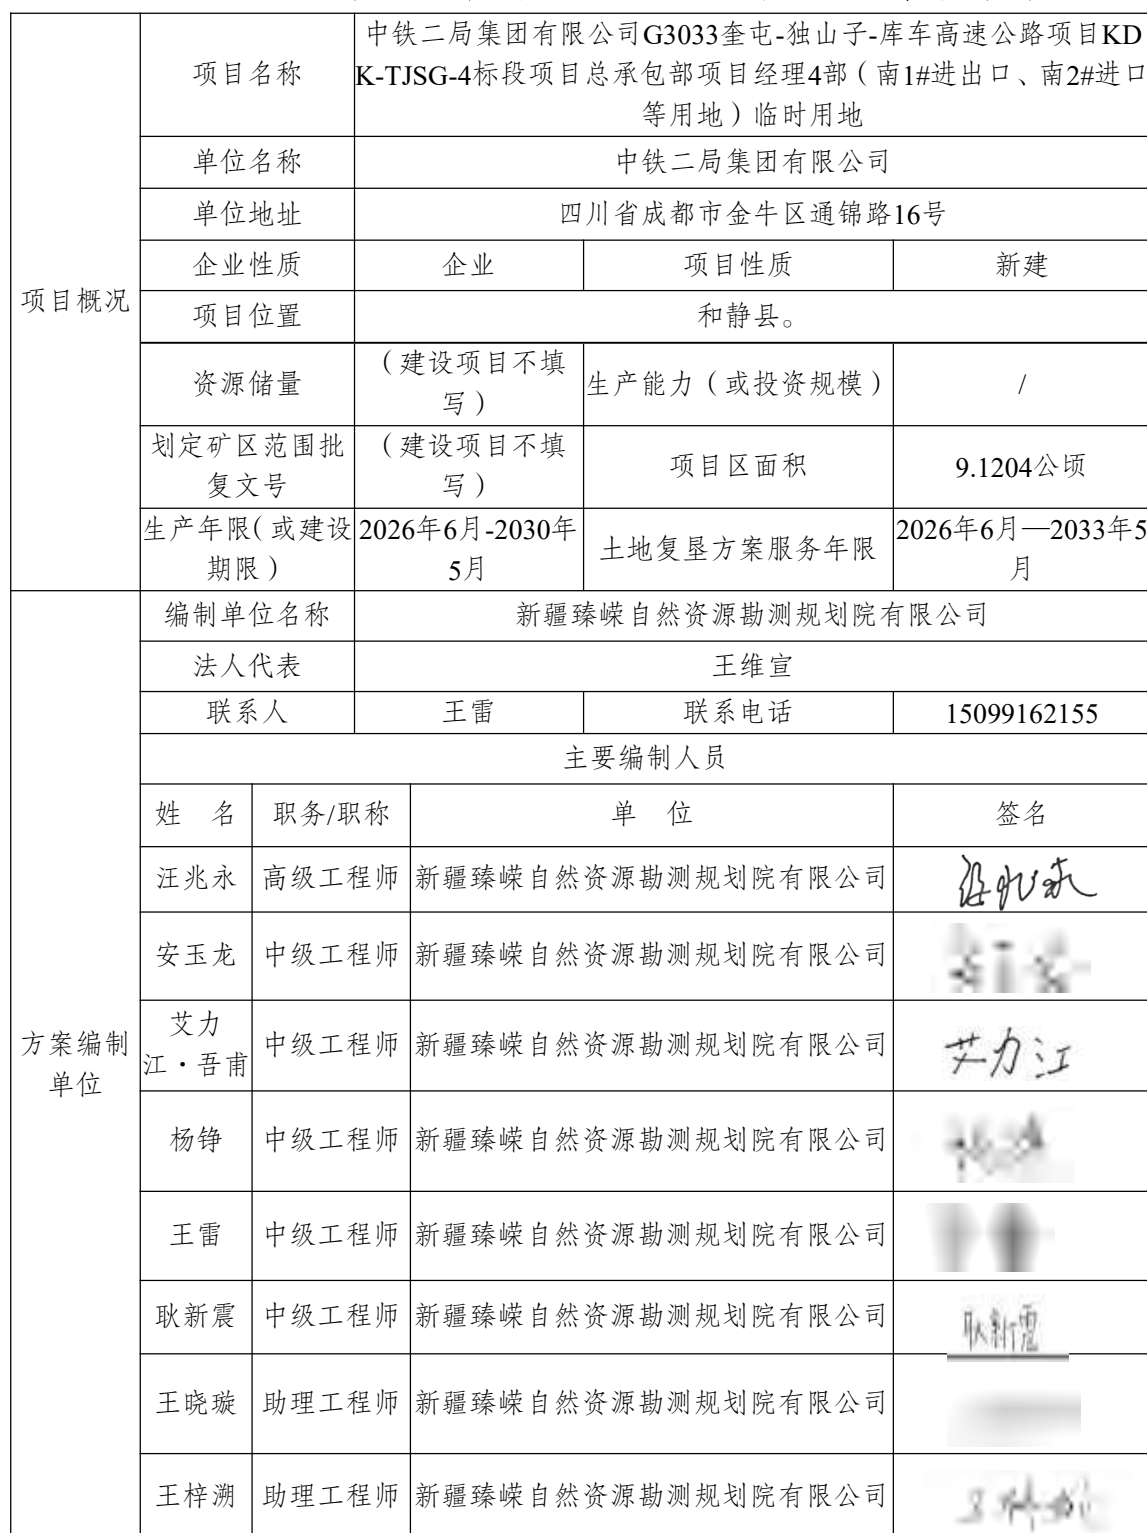 项目概况
项目名称
中铁二局集团有限公司G3033奎屯-独山子-库车高速公路项目KD
K-TJSG-4标段项目总承包部项目经理4部（南1#进出口、南2#进口
等用地）临时用地
单位名称
中铁二局集团有限公司
单位地址
四川省成都市金牛区通锦路16号
企业性质
企业
项目性质
新建
项目位置
和静县。
资源储量
（建设项目不填
写）
生产能力（或投资规模）
/
划定矿区范围批
复文号
（建设项目不填
写）
项目区面积
9.1204公顷
生产年限（或建设
期限）
2026年6月-2030年
5月
土地复垦方案服务年限
2026年6月—2033年5
月
方案编制
单位
编制单位名称
新疆臻嵘自然资源勘测规划院有限公司
法人代表
王维宣
联系人
王雷
联系电话
15099162155
主要编制人员
姓 名
职务/职称
单 位
签名
汪兆永
高级工程师
新疆臻嵘自然资源勘测规划院有限公司
汪兆永
安玉龙
中级工程师
新疆臻嵘自然资源勘测规划院有限公司
艾力
江·吾甫
中级工程师
新疆臻嵘自然资源勘测规划院有限公司
艾力江
杨铮
中级工程师
新疆臻嵘自然资源勘测规划院有限公司
王雷
中级工程师
新疆臻嵘自然资源勘测规划院有限公司
耿新震
中级工程师
新疆臻嵘自然资源勘测规划院有限公司
耿新震
王晓璇
助理工程师
新疆臻嵘自然资源勘测规划院有限公司
王梓溯
助理工程师
新疆臻嵘自然资源勘测规划院有限公司